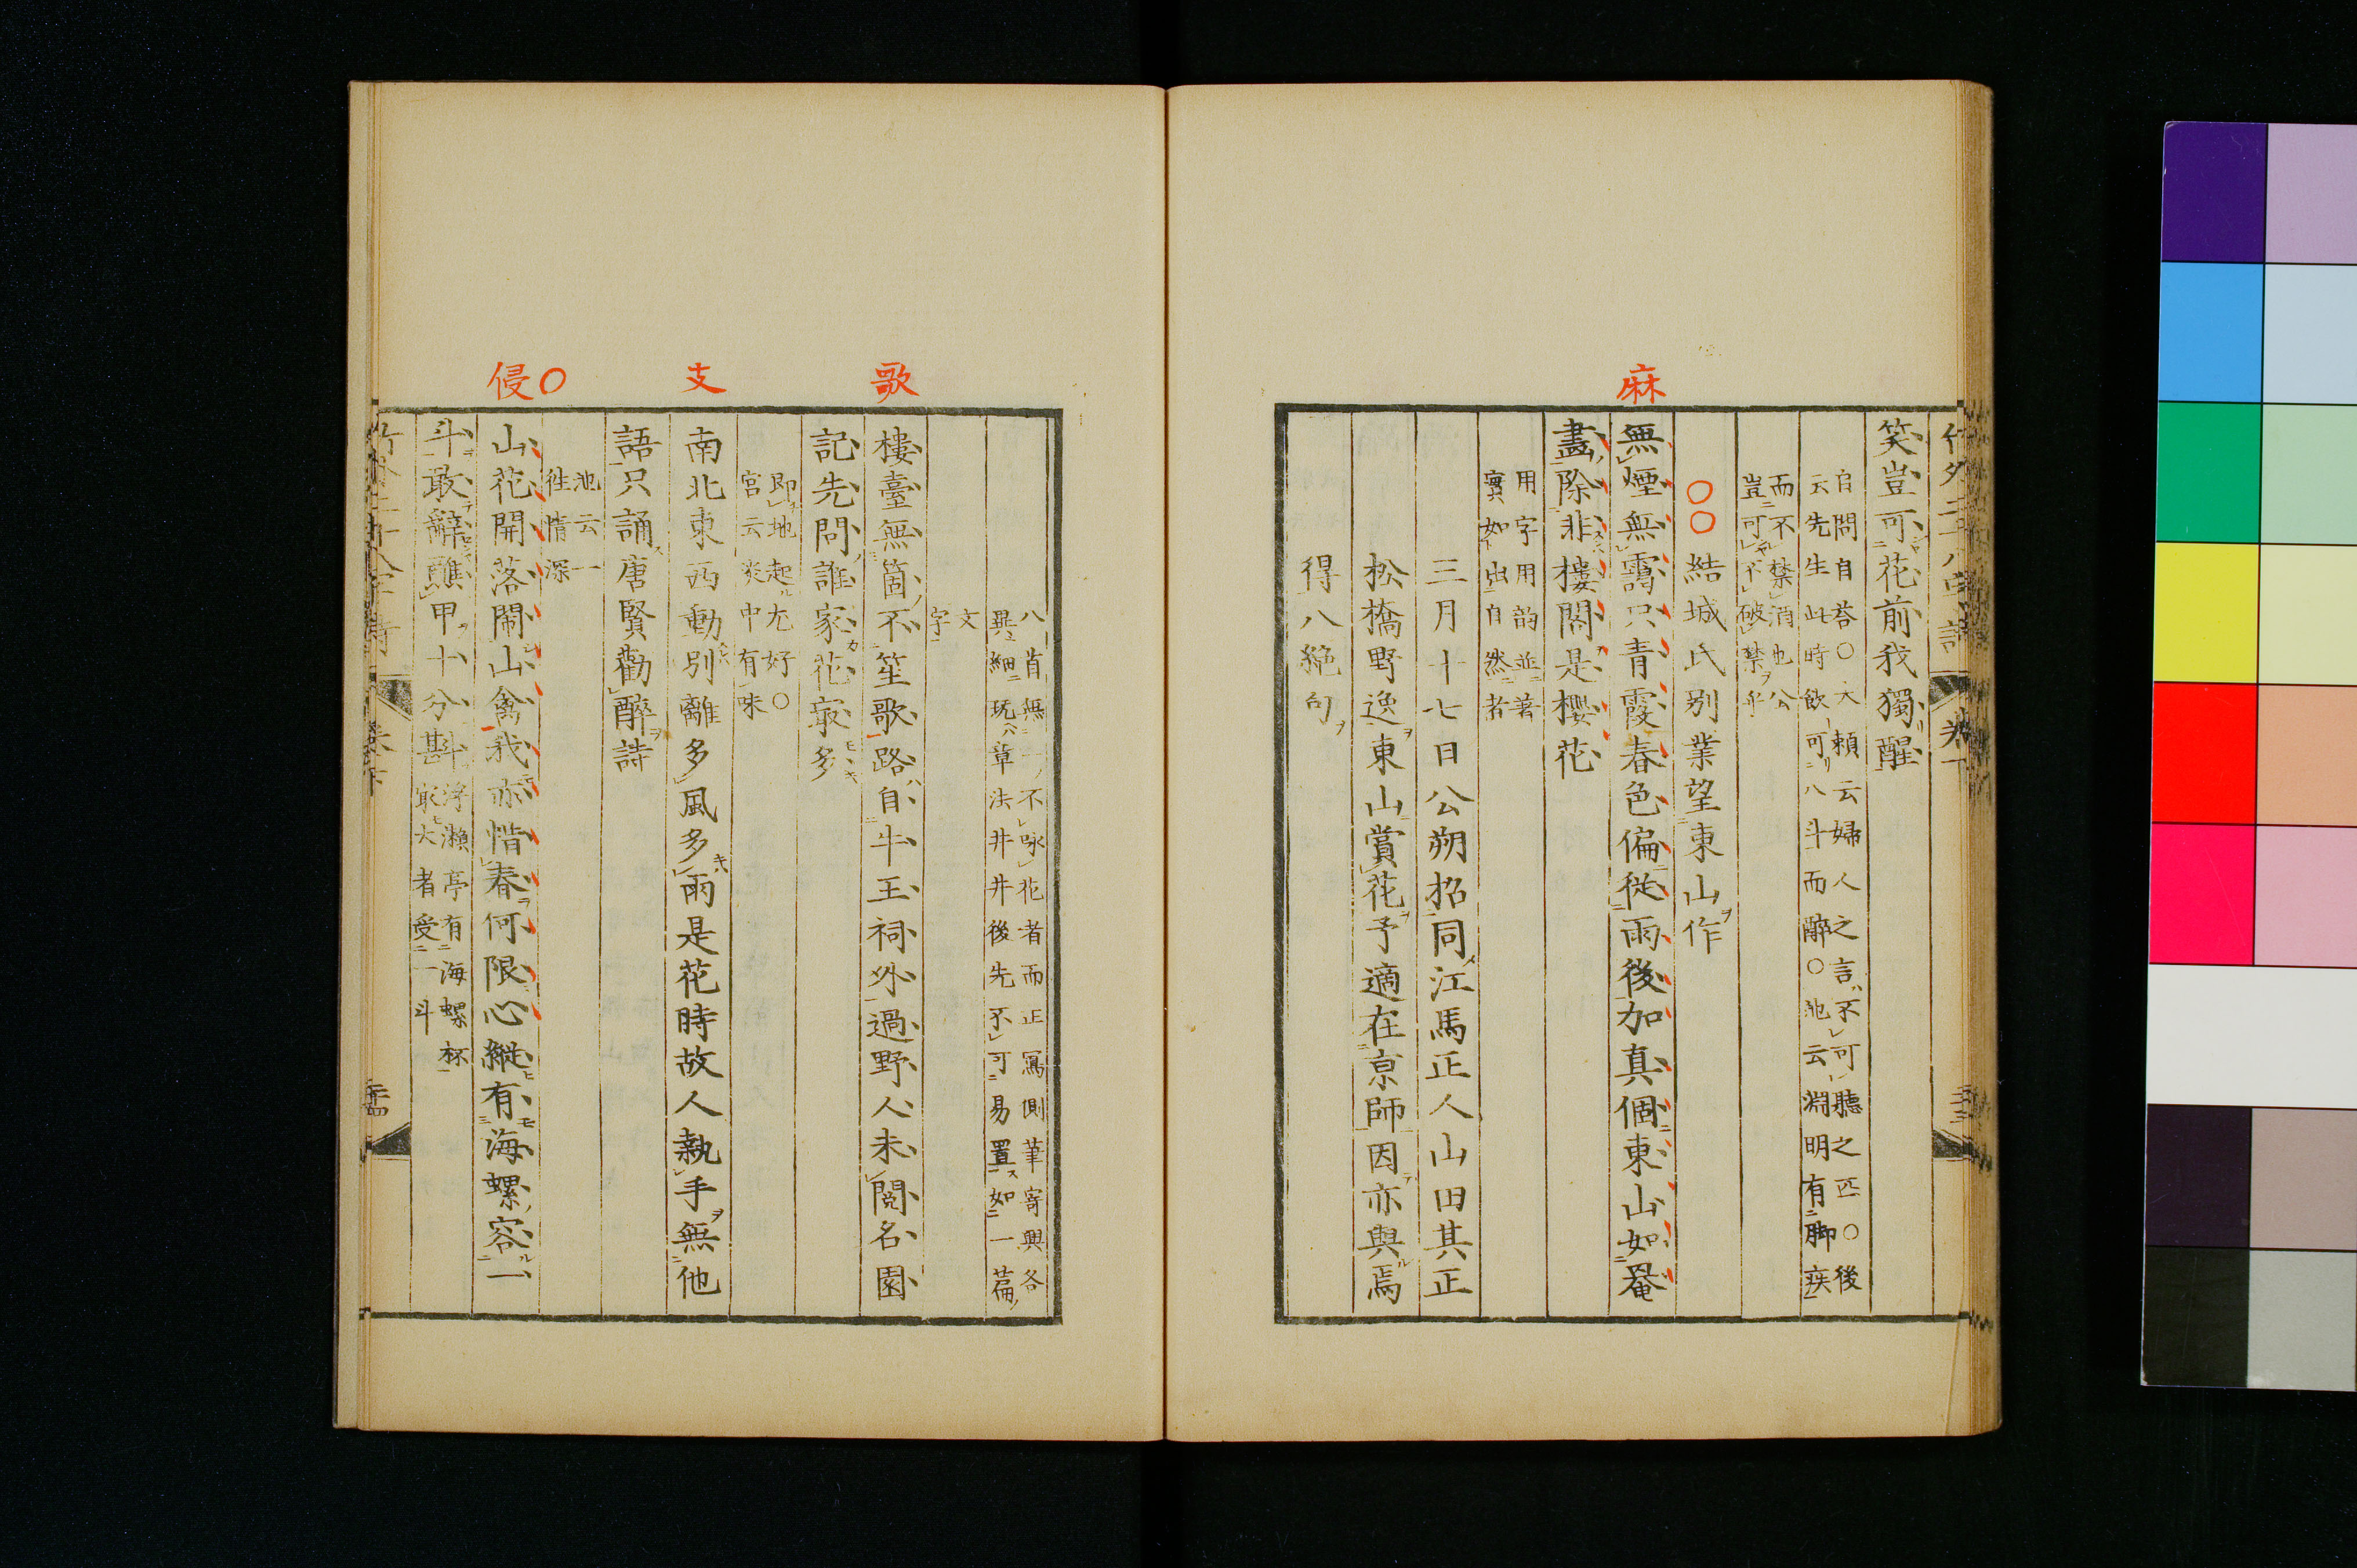 麻
笑豈可花前我獨醒
自問自答○大賴云婦人之言不可聽之匹○後
云先生此時飲可八斗而醉○池云淵明有脚疾
而不禁酒也公
豈可不破禁乎
○○結城氏別業望東山作
無煙無靄只青霞春色偏從雨後加真個東山如罨
畫除非樓閣是櫻花
用字用韵並著
實如出自然者
三月十七日公朔招同江馬正人山田其正
松橋野逸東山賞花予適在京師因亦與焉
得八絶句
歌
支
○侵
八首無一不咏花者而正寫側筆寄興各
異細玩章法井井後先不可易置如一篇
文
字
樓臺無箇不笙歌路自牛王祠外過野人未閲名園
記先問誰家花最多
即地起尤好○
宮云淡中有味
南北東西動別離多風多雨是花時故人執手無他
語只誦唐賢勸醉詩
池云一
往情深
山花開落鬧山禽我亦惜春何限心縱有海螺容一
斗敢辭蘸甲十分斟
浮瀨亭有海螺杯
最大者受一斗